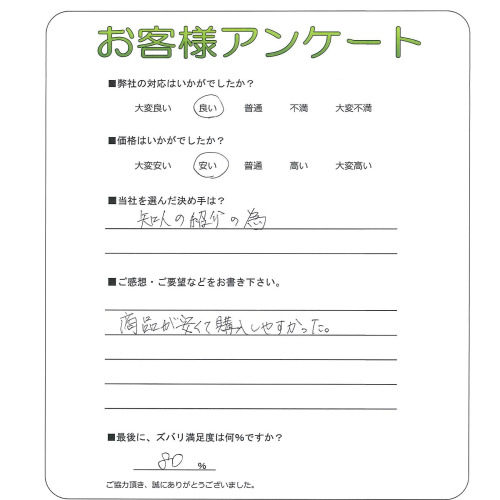 お客様アンケート
■弊社の対応はいかがでしたか？
大変良い 良い 普通 不満 大変不満
■価格はいかがでしたか？
大変安い 安い 普通 高い 大変高い
■当社を選んだ決め手は？
知人の紹介の為
■ご感想・ご要望などをお書き下さい。
商品が安くて購入しやすかった。
■最後に、ズバリ満足度は何%ですか？
80 %
ご協力頂き、誠にありがとうございました。